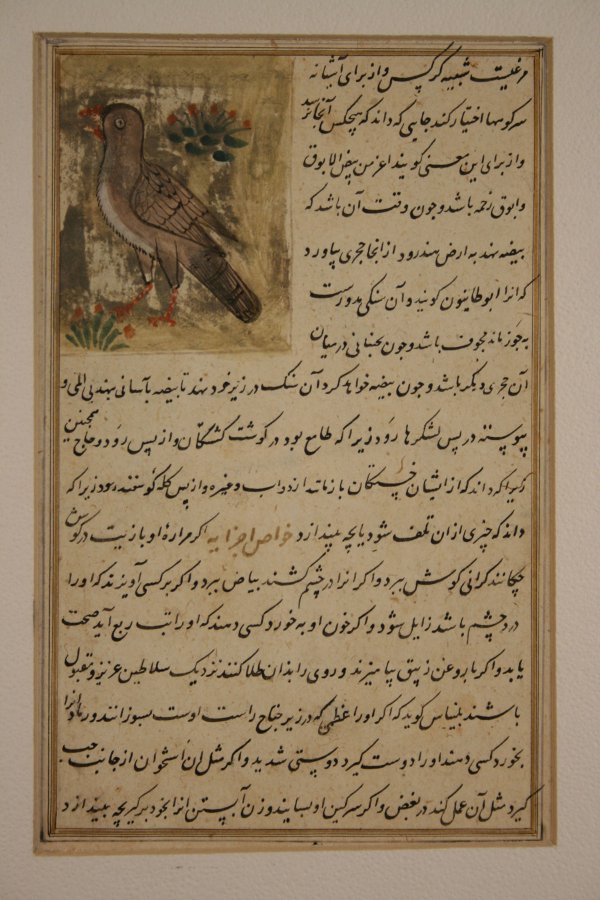 مرغیست شبیه کرکس و از برای آشیانه
سر کوهها اختیار کند جایی که داند که هیچکس آنجا نرسد
و از برای این معنی کویند اعز من بیض الانوق
و انوق رخمه باشد و چون وقت آن باشد که
بیضه نهد به ارض هند رود از انجا حجری بیاورد
که انرا کویند و آن سنکی مدورست
به جوز ماند مجوف باشد و چون بجنبانی در میان
آن حجری دیکر باشد و چون بیضه خواهد کرد آن سنک در زیر خود نهد تا بیضه بآسانی نهد بی المی و
پیوسته در پس لشکرها رود زیرا که طامع بود در کوشت کشتکان و از پس رود و حاج همچنین
زیرا که داند که از ایشان خستکان باز ماند از دواب و غیره و از پس کله کوسفند رود زیرا که
داند که چیزی از ان تلف شود یا بچه بیندازد خواص اجزایه اکر مراره او با زیت در کوش
چکانند کرانی کوش ببرد و اکر انرا در چشم کشند بیاض ببرد و اکر بر کسی آویزند که او را
درد چشم باشد زایل شود و اکر خون او به خورد کسی دهند که او را تب ربع آید صحت
یابد و اکر با روغن زیبق بیامیزند و روی را بدان طلا کنند نزدیک سلاطین عزیز و مقبول
باشند بلیناس کوید که اکر او را عظمی که در زیر جناح راست اوست بسوزانند و رماد انرا
بخورد کسی دهند او را دوست کیرد دوستی شدید و اکر مثل ان استخوان از جانب چپ
کیرد مثل آن عمل کند در بغض و اکر سرکین او بسایند و زن آبستن انرا بخود برکیرد بچه بیندازد